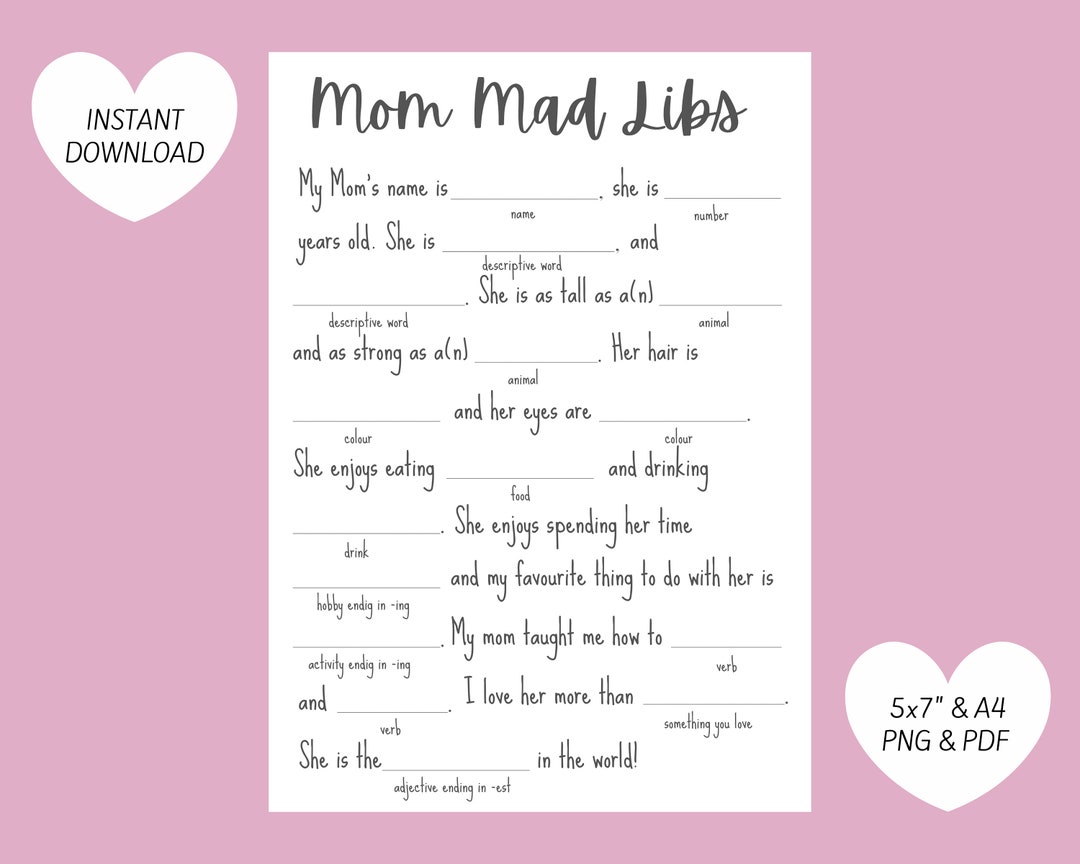 INSTANT
DOWNLOAD
Mom Mad Libs
My Mom's name is ____________, she is ____________
name number
years old. She is ____________, and
descriptive word
____________. She is as tall as a(n) ____________
descriptive word animal
and as strong as a(n) ____________. Her hair is
animal
____________ and her eyes are ____________.
colour colour
She enjoys eating ____________ and drinking
food
____________. She enjoys spending her time
drink
____________ and my favourite thing to do with her is
hobby endig in -ing
____________. My mom taught me how to ____________
activity endig in -ing verb
and ____________. I love her more than ____________.
verb something you love
She is the____________ in the world!
adjective ending in -est
5x7" & A4
PNG & PDF